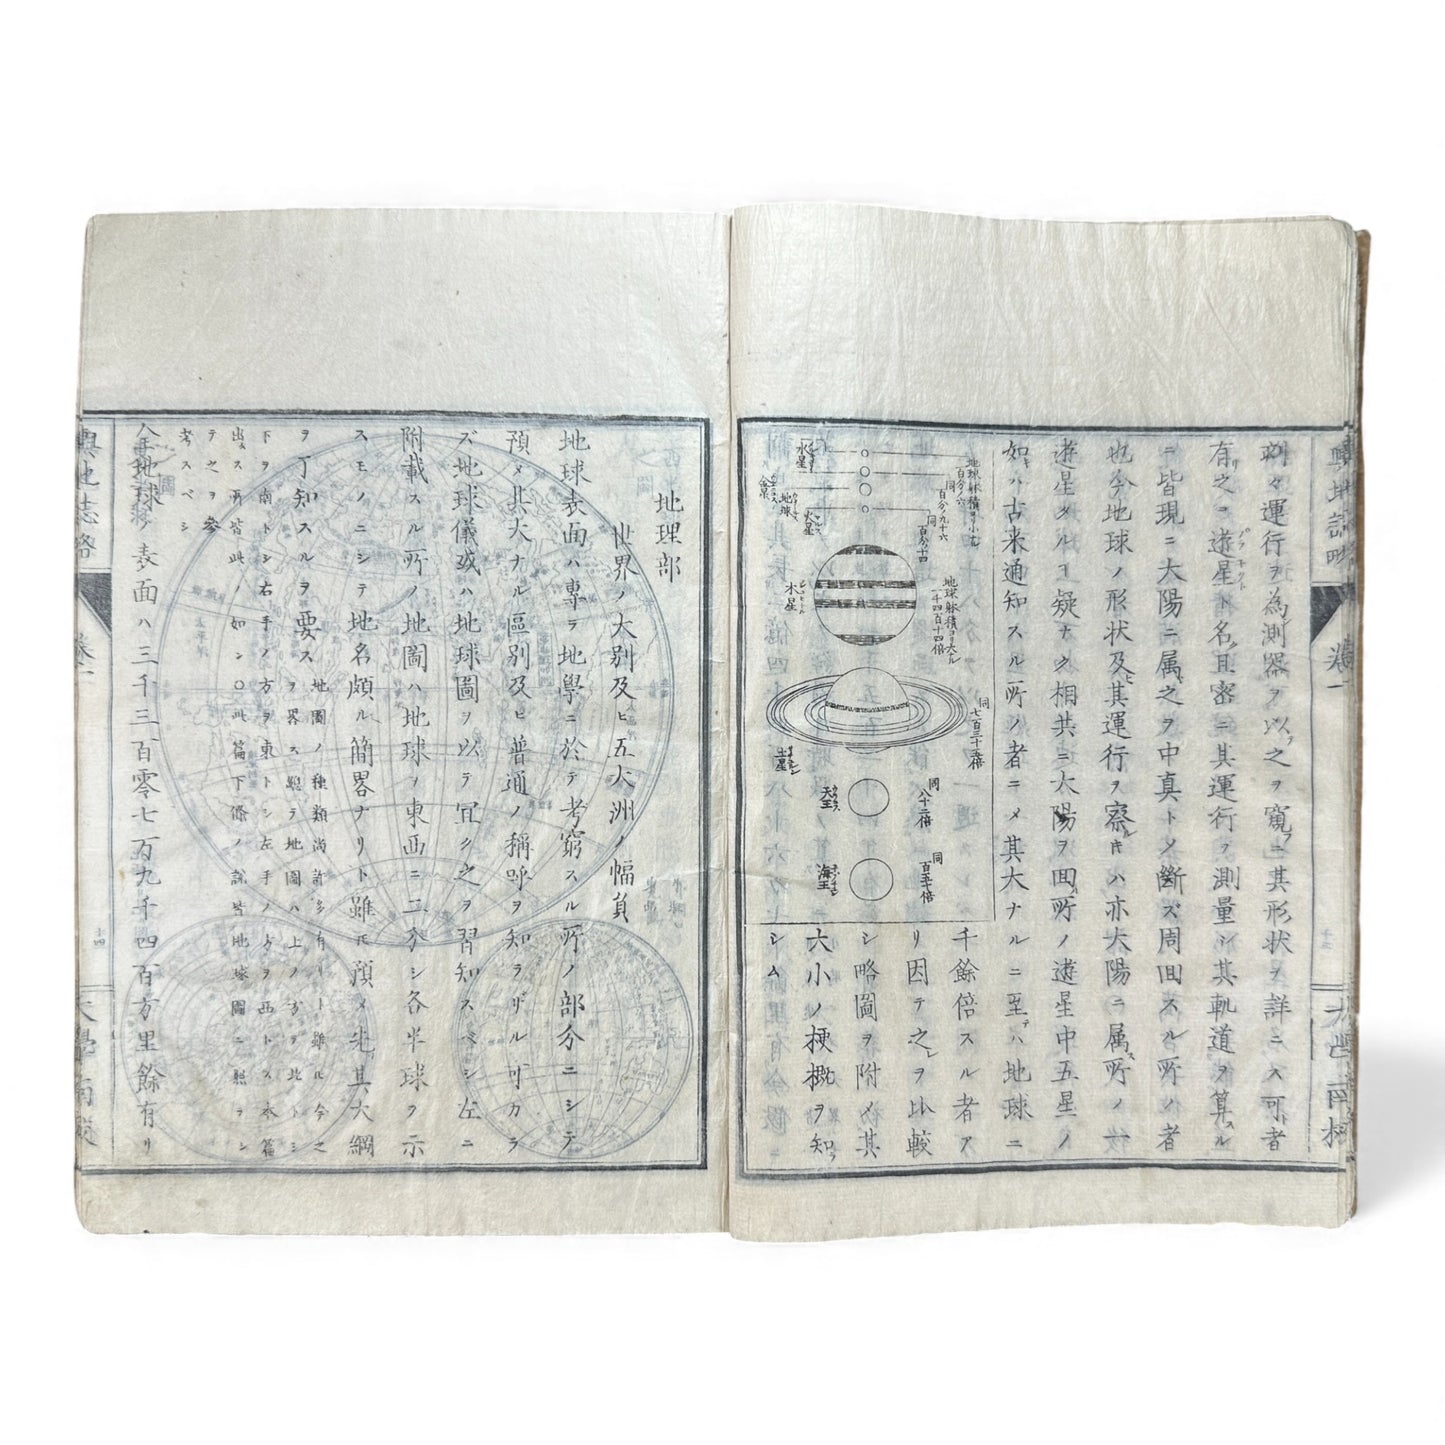 輿地誌略
卷一
大學南校
刻々運行ヲ為測器ヲ以之ヲ窺ニ其形状ヲ詳ニス可者
有之ヲ遊星ト名且密ニ其運行ヲ測量シ其軌道ヲ算スル
ニ皆現ニ大陽ニ属之ヲ中真トメ断ズ周囬スル所ノ者
也今地球ノ形状及其運行ヲ察キハ亦大陽ニ属所ノ一
遊星タルヿ疑ナク相共ニ大陽ヲ囬所ノ遊星中五星ノ
如ハ古来通知スル所ノ者ニメ其大ナルニ至ハ地球ニ
千餘倍スル者ア
リ因テ之ヲ比較
シ略圖ヲ附メ其
大小ノ梗概ヲ知
シム
水星
地球躰積ヨリ小ナル
百分ノ六
金星
同
百分ノ九十六
地球
火星
同
百分十四
木星
地球躰積ヨリ大ル
一千四百十四倍
土星
同
七百三十五倍
天王
同
八十二倍
海王
同
百五十倍
地理部
世界ノ大別及ヒ五大洲ノ幅員
地球表面ハ專ラ地學ニ於テ考窮スル所ノ部分ニシテ
預メ其大ナル區別及ヒ普通ノ稱呼ヲ知ラザル可カラ
ズ地球儀或ハ地球圖ヲ以テ冝ク之ヲ習知スベシ左ニ
附載スル所ノ地圖ハ地球ノ東西ニ二分シ各半球ヲ示
スモノニシテ地名頗ル簡畧ナリト雖𪜈預メ先其大綱
ヲ了知スルヲ要ス
地圖ノ種類尚許多有リト雖ル今之
ヲ畧ス總テ地圖ハ上ノ方ヲ北トシ
下ヲ南トシ右手ノ方ヲ東トシ左手ノ方ヲ西トス本篇
出ス所皆此ノ如シ〇此篇下條ノ説皆地球圖ニ照ヲシ
テ之ヲ參
考スベシ
全地球ノ表面ハ三千三百零七万九千四百方里餘有リ
輿地誌略
卷一
十四
大學南校